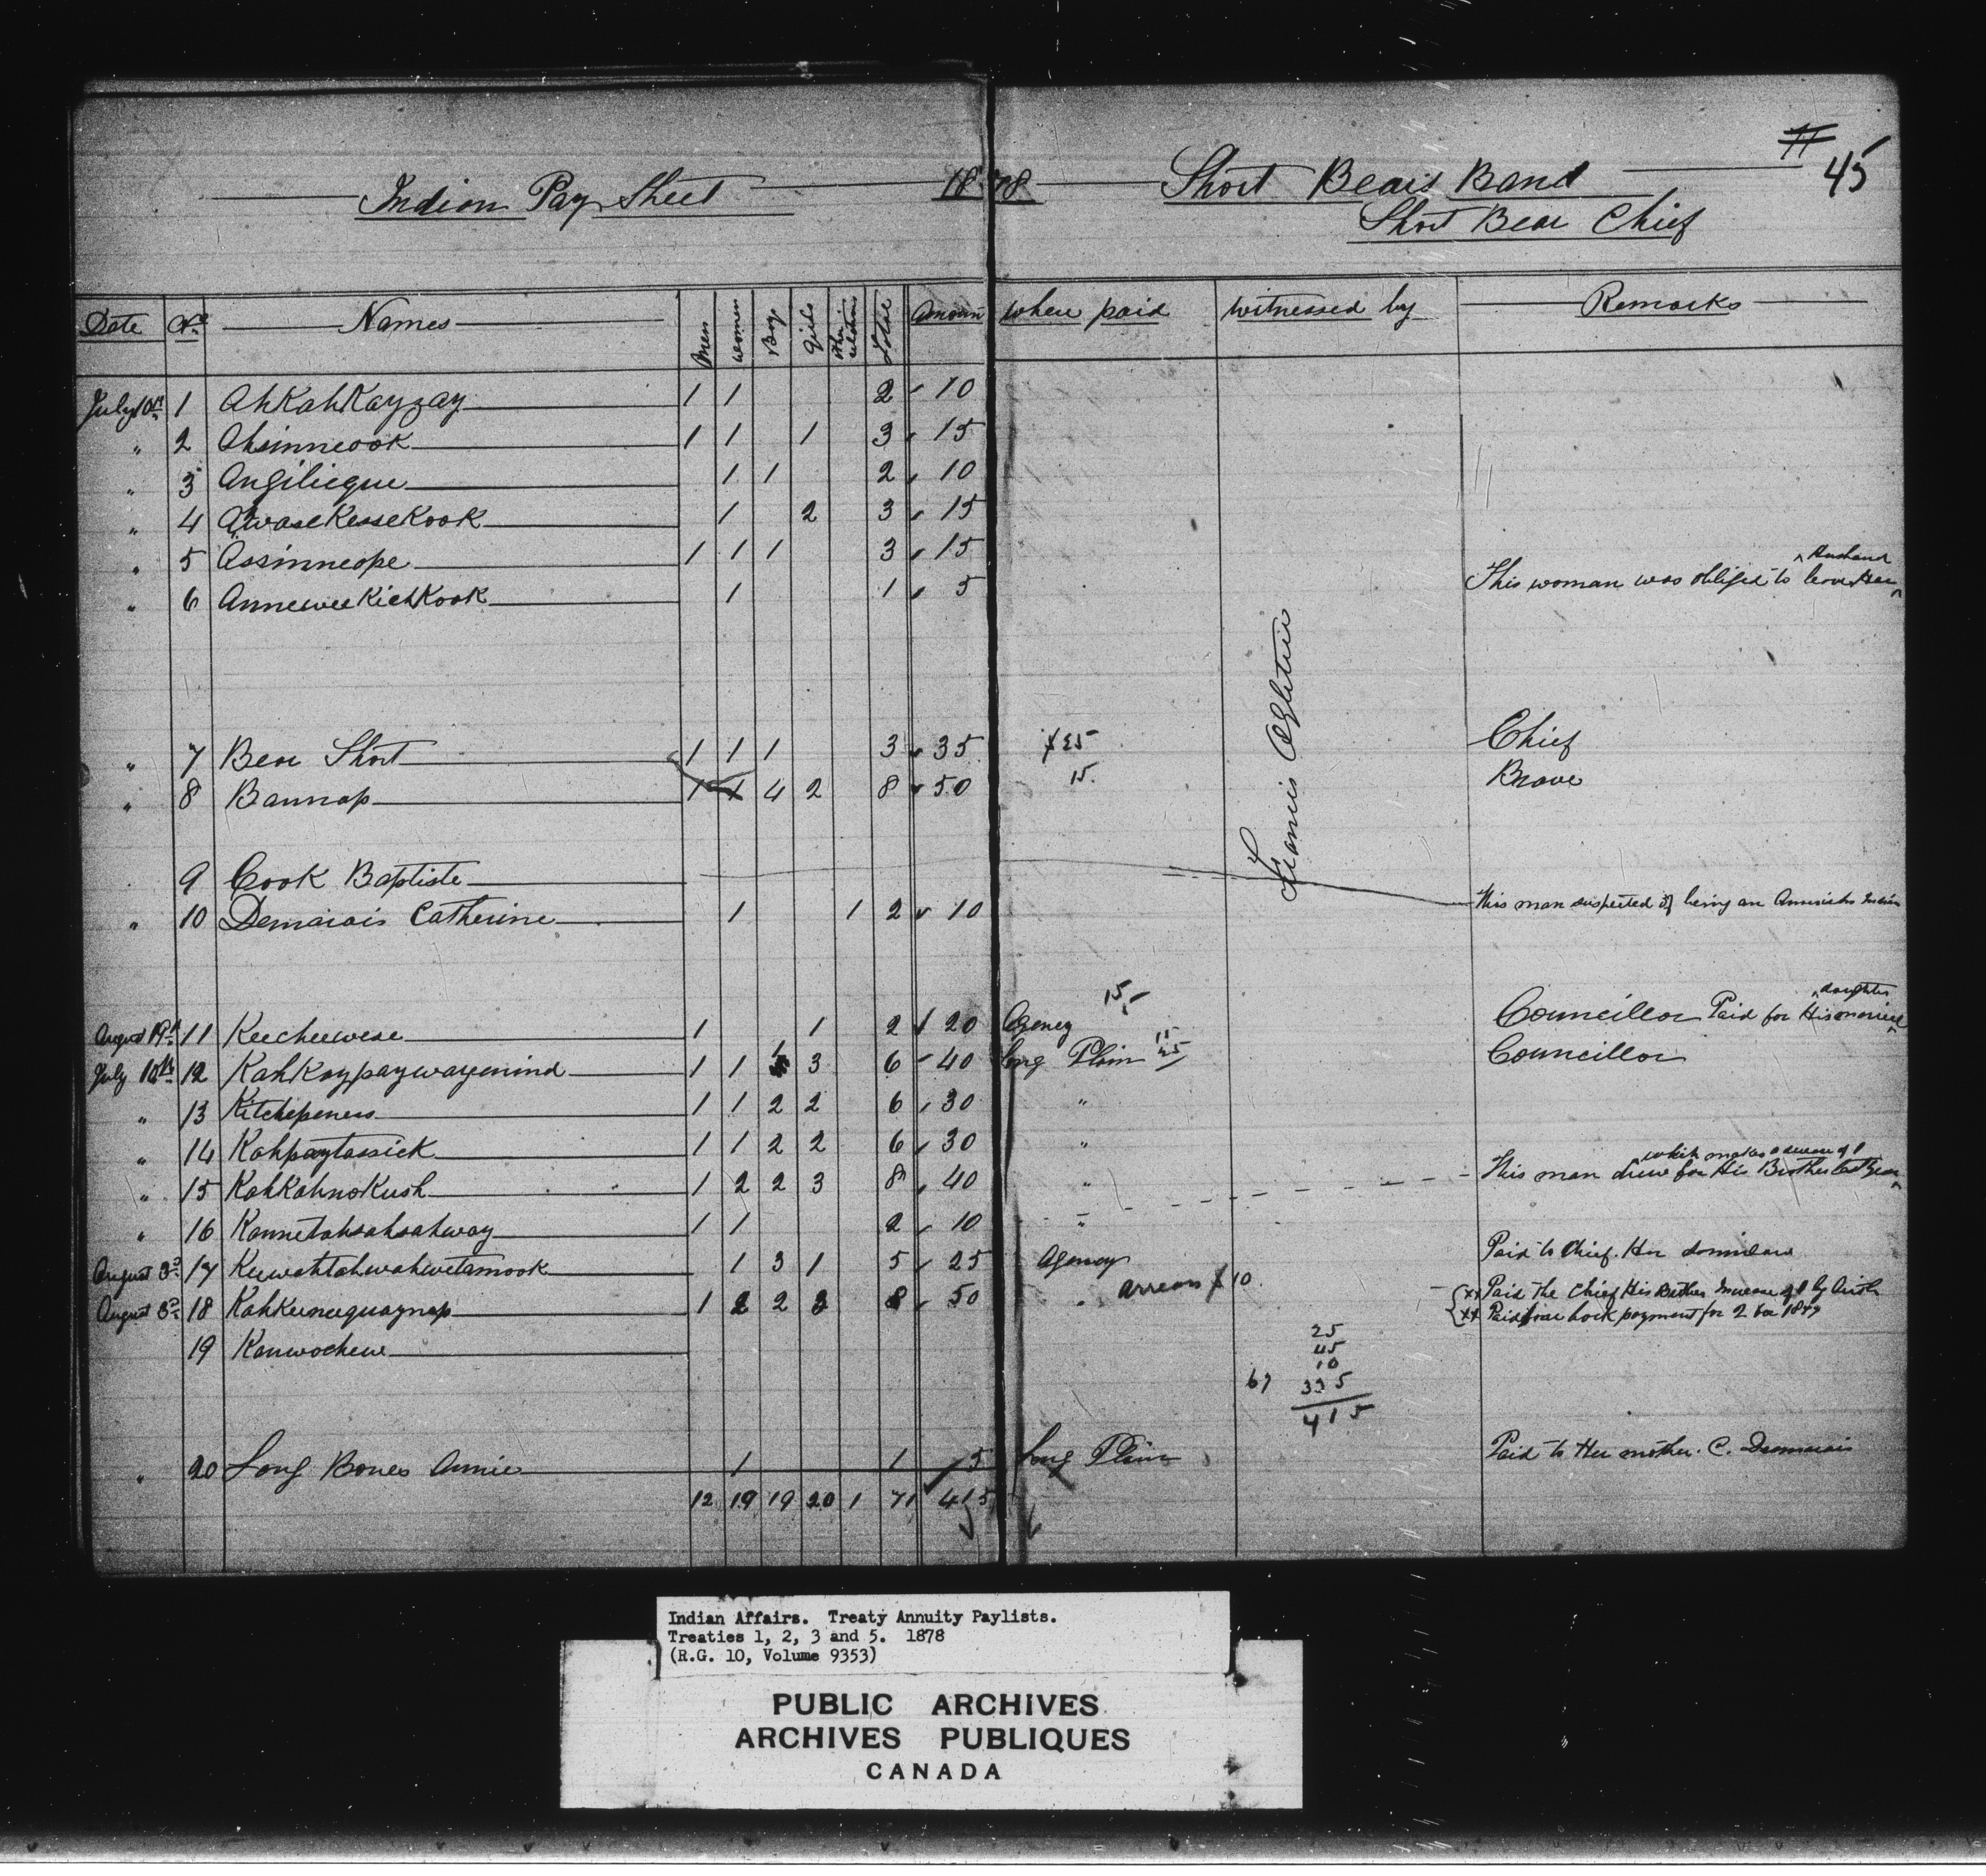 11 45
Indian Pay Sheet 1878 Short Bears Band
Short Bear Chief
Date No Names Men Women Boys Girls Other relations Total Amount When paid Witnessed by Remarks
July 10th 1 AhKahKayzay 1 1 2 10
" 2 Ahsinneook 1 1 1 3 15
" 3 Angilicque 1 1 2 10
" 4 AwaseKesseKook 1 2 3 15
" 5 Assinneope 1 1 1 3 15
" 6 AnneweeKichKook 1 1 5 This woman was obliged to leave Her ^ Husband
Francis Ogletree
" 7 Bear Short 1 1 1 3 35 Chief
" 8 Bannap 1 1 4 2 8 50 15 Brave
9 Cook Baptiste This man suspected of being an American Indian
" 10 Demarais Catherine 1 1 2 10
15
August 19th 11 Keecheewese 1 1 2 20 Agency Councillor Paid for His married ^ daughter
July 10th 12 KahKaypaywaymind 1 1 1 3 6 40 Long Plain Councillor
" 13 Kitchepeness 1 1 2 2 6 30 "
" 14 Kahpaytassick 1 1 2 2 6 30 "
" 15 KahKahnoKush 1 2 2 3 8 40 " This man drew for His Brother last year ^ which makes decrease of 1
" 16 Kannetahsahsahway 1 1 2 10 "
August 3rd 17 Keewahtahwahwetamook 1 3 1 5 25 Agency Paid to Chief. Her
August 3rd 18 Kahkeeneequaynap 1 2 2 3 8 50 " arrears 10 Paid the Chief His Brother Increase of 1 by birth
Paid back payment for 2 for 1877
19 Kanwochewe
25
45
10
67 335
415
" 20 Long Bones Annie 1 1 5 Long Plain Paid to Her mother. C. Demarais
12 19 19 20 1 71 415
Indian Affairs. Treaty Annuity Paylists.
Treaties 1, 2, 3 and 5. 1878
(R.G. 10, Volume 9353)
PUBLIC ARCHIVES
ARCHIVES PUBLIQUES
CANADA